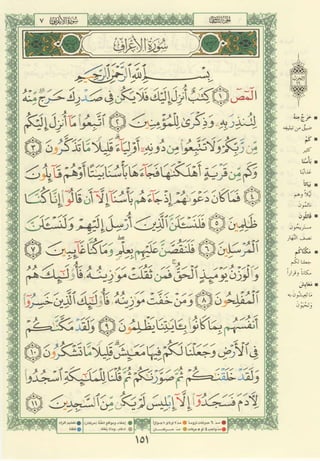 سُورَةُ الأَعْرَافِ ٧
سُورَةُ الأَعْرَافِ
بِسْمِ ٱللَّهِ ٱلرَّحْمَٰنِ ٱلرَّحِيمِ
الٓمٓصٓ ١ كِتَٰبٌ أُنزِلَ إِلَيْكَ فَلَا يَكُن فِى صَدْرِكَ حَرَجٌ مِّنْهُ
لِتُنذِرَ بِهِۦ وَذِكْرَىٰ لِلْمُؤْمِنِينَ ٢ ٱتَّبِعُوا۟ مَآ أُنزِلَ إِلَيْكُم
مِّن رَّبِّكُمْ وَلَا تَتَّبِعُوا۟ مِن دُونِهِۦٓ أَوْلِيَآءَ قَلِيلًا مَّا تَذَكَّرُونَ ٣
وَكَم مِّن قَرْيَةٍ أَهْلَكْنَٰهَا فَجَآءَهَا بَأْسُنَا بَيَٰتًا أَوْ هُمْ قَآئِلُونَ
٤ فَمَا كَانَ دَعْوَىٰهُمْ إِذْ جَآءَهُم بَأْسُنَآ إِلَّآ أَن قَالُوٓا۟ إِنَّا كُنَّا
ظَٰلِمِينَ ٥ فَلَنَسْـَٔلَنَّ ٱلَّذِينَ أُرْسِلَ إِلَيْهِمْ وَلَنَسْـَٔلَنَّ
ٱلْمُرْسَلِينَ ٦ فَلَنَقُصَّنَّ عَلَيْهِم بِعِلْمٍ وَمَا كُنَّا غَآئِبِينَ ٧
وَٱلْوَزْنُ يَوْمَئِذٍ ٱلْحَقُّ فَمَن ثَقُلَتْ مَوَٰزِينُهُۥ فَأُو۟لَٰٓئِكَ هُمُ
ٱلْمُفْلِحُونَ ٨ وَمَنْ خَفَّتْ مَوَٰزِينُهُۥ فَأُو۟لَٰٓئِكَ ٱلَّذِينَ خَسِرُوٓا۟
أَنفُسَهُم بِمَا كَانُوا۟ بِـَٔايَٰتِنَا يَظْلِمُونَ ٩ وَلَقَدْ مَكَّنَّٰكُمْ
فِى ٱلْأَرْضِ وَجَعَلْنَا لَكُمْ فِيهَا مَعَٰيِشَ قَلِيلًا مَّا تَشْكُرُونَ ١٠
وَلَقَدْ خَلَقْنَٰكُمْ ثُمَّ صَوَّرْنَٰكُمْ ثُمَّ قُلْنَا لِلْمَلَٰٓئِكَةِ ٱسْجُدُوا۟
لِـَٔادَمَ فَسَجَدُوٓا۟ إِلَّآ إِبْلِيسَ لَمْ يَكُن مِّنَ ٱلسَّٰجِدِينَ ١١
حَرَجٌ مِّنْهُ
ضيق من تبليغه
كَمْ
كثير
بَأْسُنَا
عذابنا
بَيَٰتًا
ليلاً وهم
نائمون
قَآئِلُونَ
مستريحون
نصف النهار
مَكَّنَّٰكُمْ
جعلنا لكم
مكاناً وقراراً
مَعَٰيِشَ
ما تعيشون به
وتحيون
١٥١